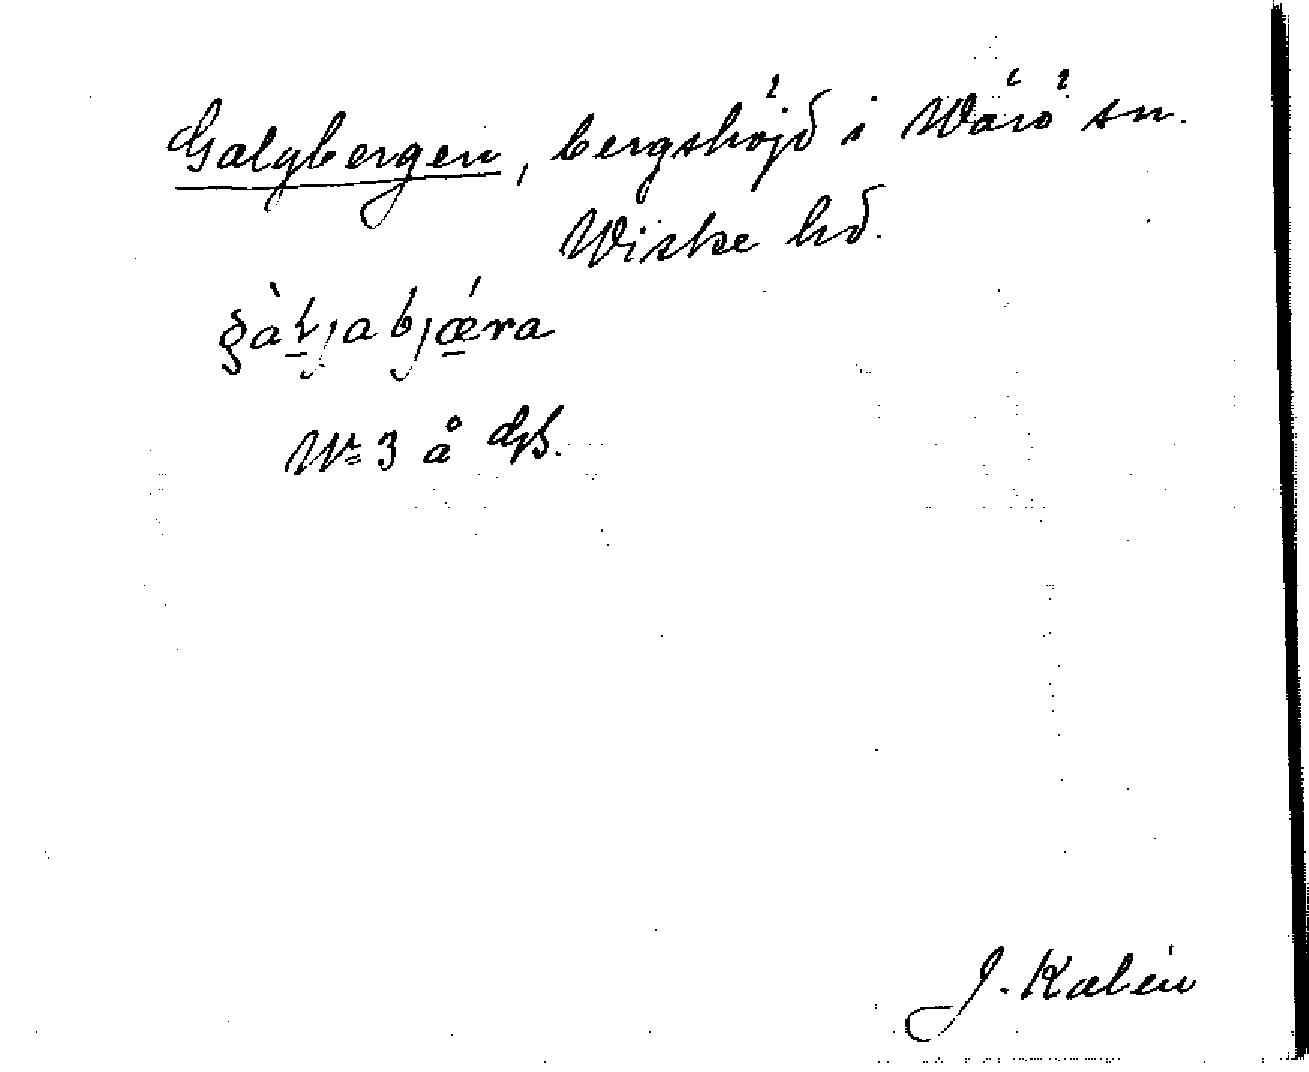 Galgbergen, bergshöjd i Wärö sn.
Wiske hd.
gàłjabjǽra
Nr 3 å
J. Kalén